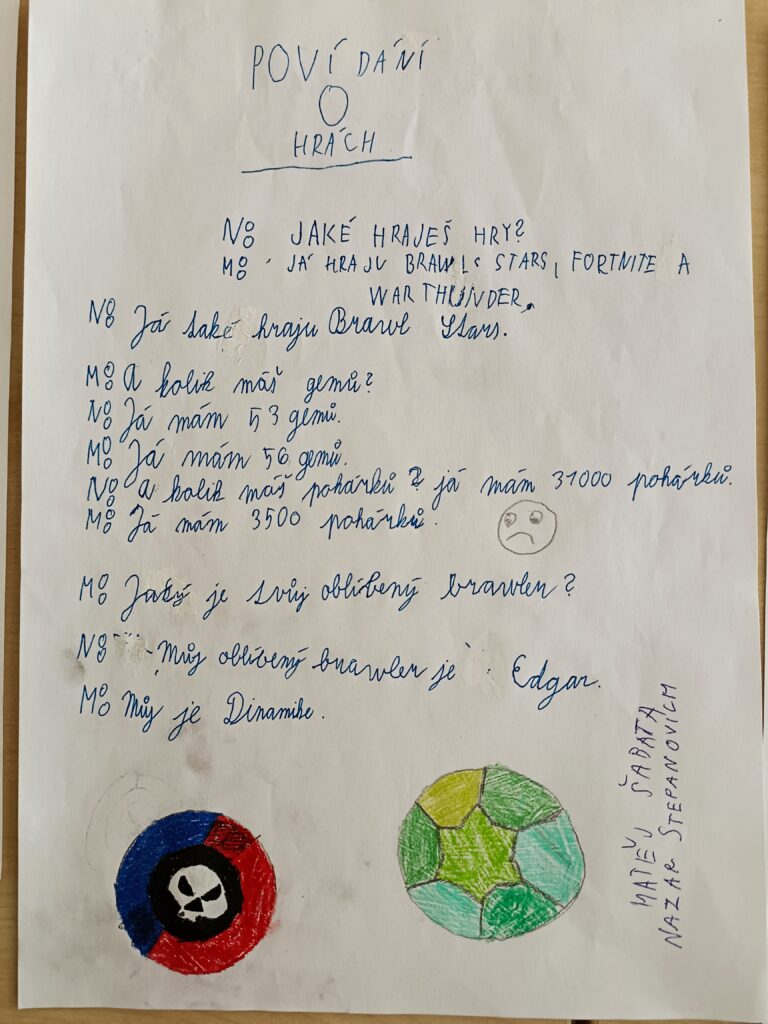 POVÍDÁNÍ
O
HRÁCH
N: JAKÉ HRAJEŠ HRY?
M: JÁ HRAJU BRAWL STARS, FORTNITE A
WAR THUNDER.
N: Já také hraju Brawl Stars.
M: A kolik máš gemů?
N: Já mám 53 gemů.
M: Já mám 56 gemů.
N: a kolik máš pohárků? já mám 31000 pohárků.
M: Já mám 3500 pohárků.
M: Jaký je tvůj oblíbený brawler?
N: Můj oblíbený brawler je Edgar.
M: Můj je Dinamike.
MATĚJ ŠABATA
NAZAR STEPANOVICH